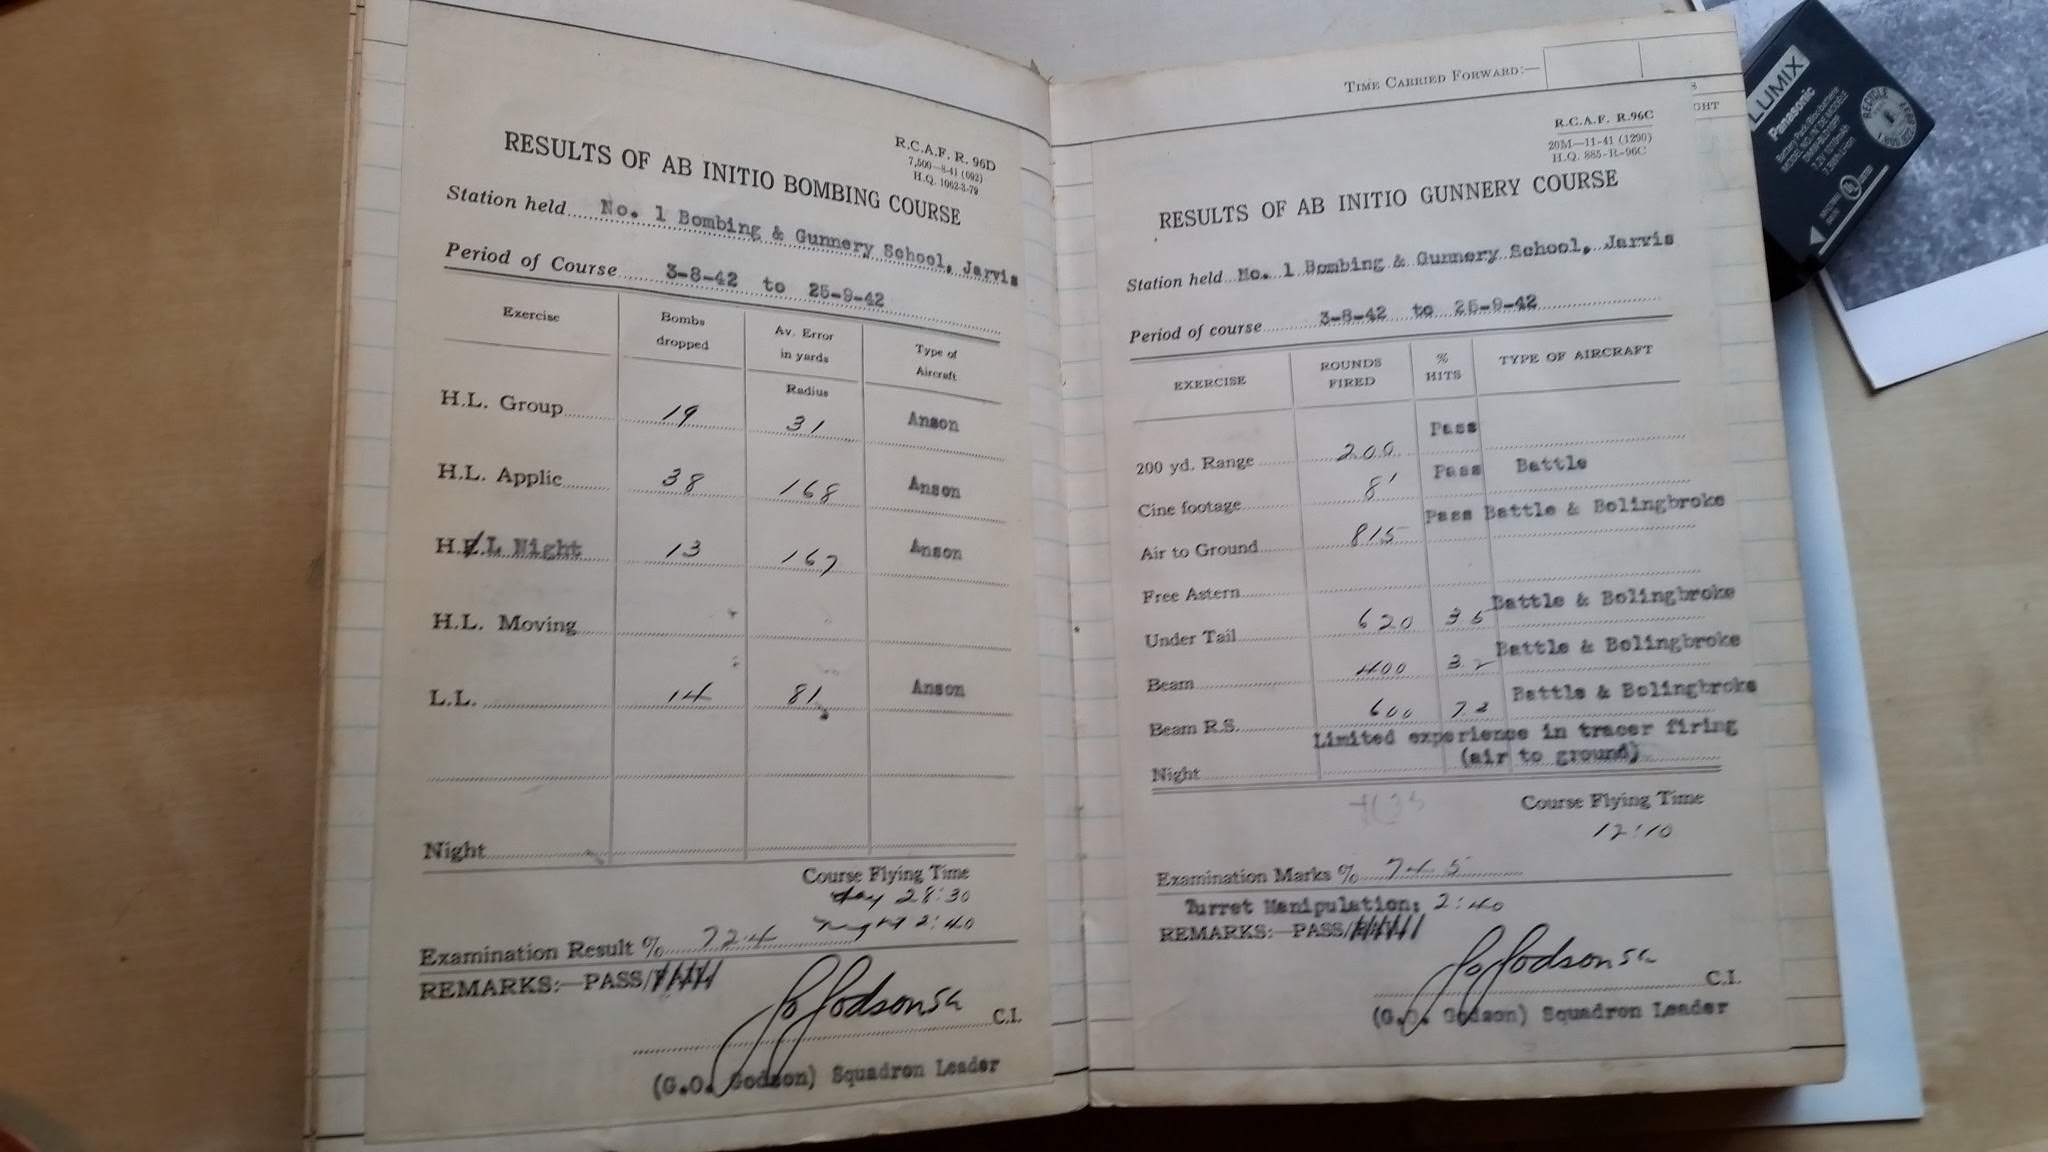 R.C.A.F. R. 96D
7,500—8-41 (692)
H.Q. 1062-3-79
RESULTS OF AB INITIO BOMBING COURSE
Station held No. 1 Bombing & Gunnery School, Jarvis
Period of Course 3-8-42 to 25-9-42
Exercise Bombs dropped Av. Error in yards Type of Aircraft
Radius
H.L. Group 19 31 Anson
H.L. Applic 38 168 Anson
H.L Night 13 167 Anson
H.L. Moving
L.L. 14 81 Anson
Night
Course Flying Time
day 28:30
night 2:40
Examination Result % 72.4
REMARKS:—PASS/
C.I.
(G.O. Godson) Squadron Leader
TIME CARRIED FORWARD:—
R.C.A.F. R.96C
20M—11-41 (1290)
H.Q. 885-R-96C
RESULTS OF AB INITIO GUNNERY COURSE
Station held No. 1 Bombing & Gunnery School, Jarvis
Period of course 3-8-42 to 25-9-42
EXERCISE ROUNDS FIRED % HITS TYPE OF AIRCRAFT
200 yd. Range 200 Pass
Cine footage 8' Pass Battle
Air to Ground 815 Pass Battle & Bolingbroke
Free Astern
Under Tail 620 Battle & Bolingbroke
Beam 400 3.2 Battle & Bolingbroke
Beam R.S. 600 Battle & Bolingbroke
Limited experience in tracer firing
Night (air to ground)
Course Flying Time
12:10
Examination Marks % 74.5
Turret Manipulation: 2:40
REMARKS:—PASS/
C.I.
(G.O. Godson) Squadron Leader
GHT
LUMIX
Panasonic